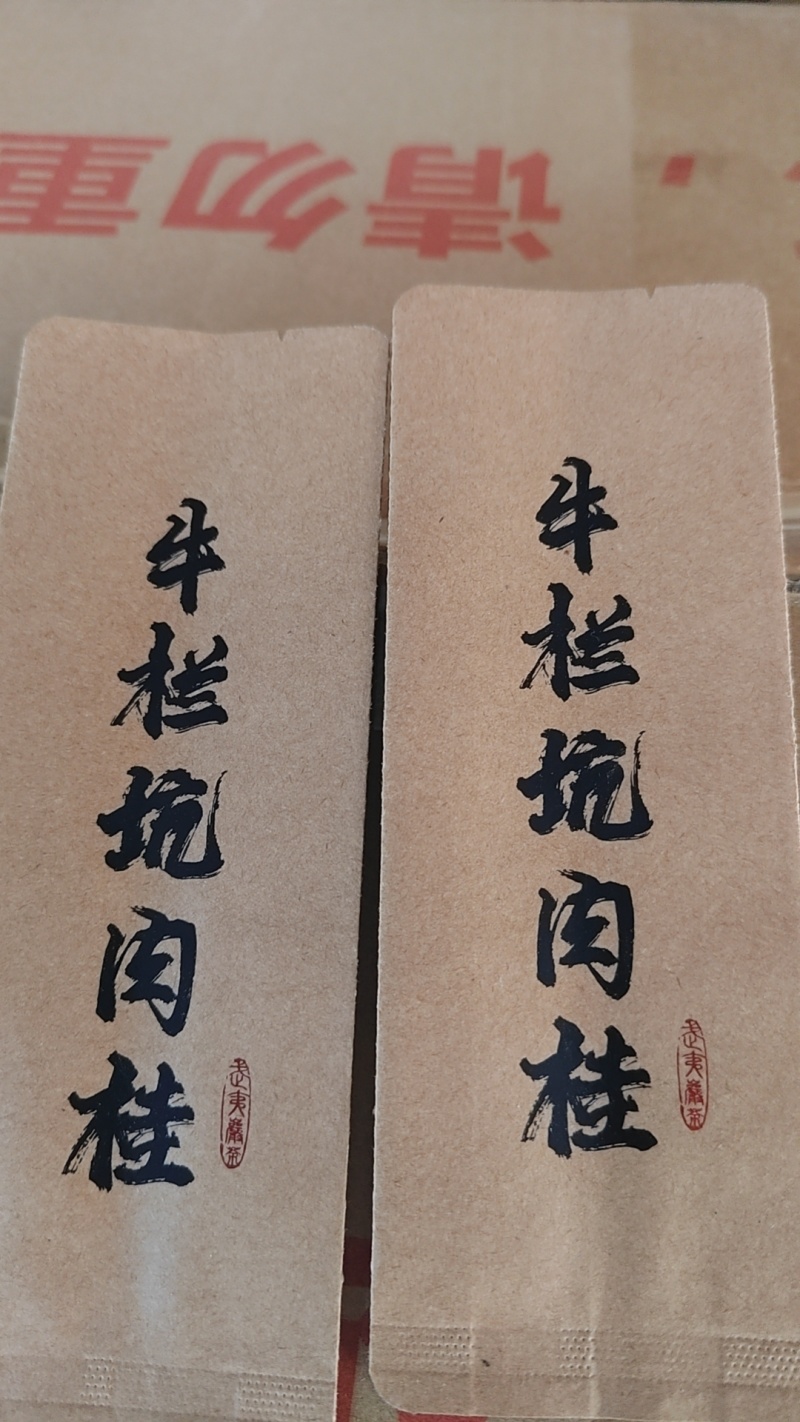 请勿重
牛栏坑肉桂
武夷巖茶
牛栏坑肉桂
武夷巖茶